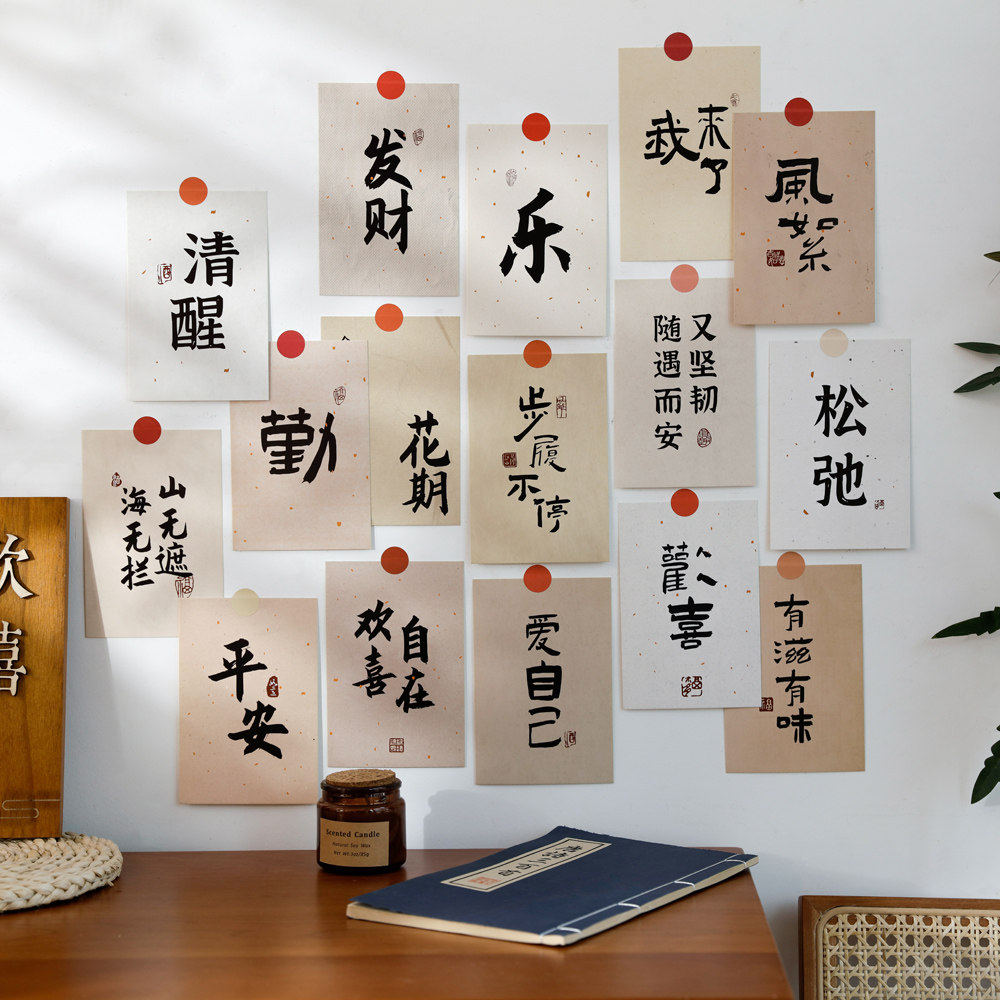 发财
乐
我
来了
風絮
清醒
勤
花期
步履不停
又坚韧
随遇而安
松弛
山无遮
海无栏
平安
自在
欢喜
爱自己
歡喜
有滋有味
欢喜
Scented Candle
Natural Soy Wax
Net Wt.3oz/85g